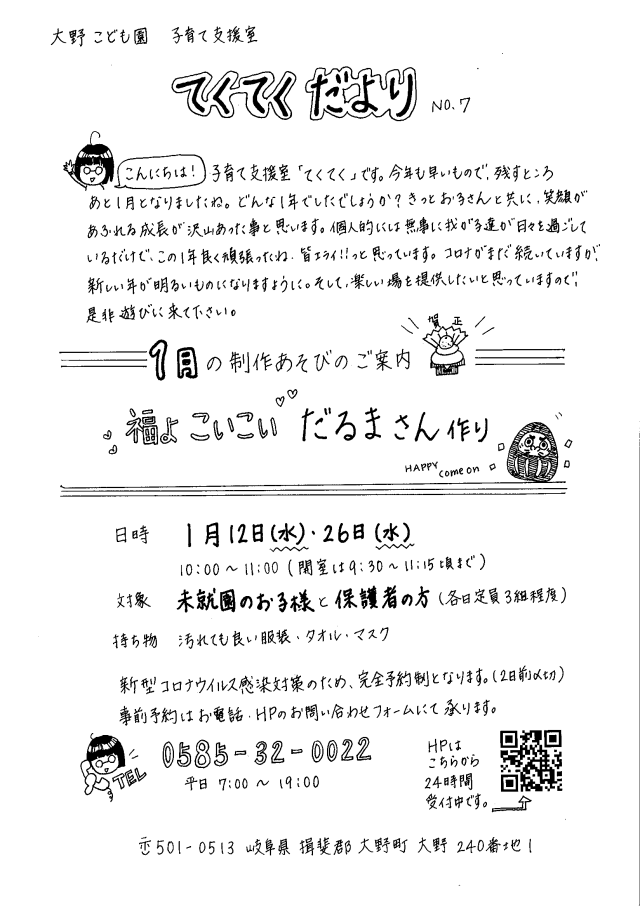 大野こども園 子育て支援室
てくてくだより NO.7
こんにちは！ 子育て支援室「てくてく」です。今年も早いもので、残すところ
あと1月となりましたね。どんな1年でしたでしょうか？きっとお子さんと共に、笑顔が
あふれる成長が沢山あった事と思います。個人的には無事に我が子達が日々を過ごして
いるだけで、この1年良く頑張ったね、皆エライ！！っと思っています。コロナがまだ続いていますが、
新しい年が明るいものになりますように。そして、楽しい場を提供したいと思っていますので、
是非遊びに来て下さい。
賀正
1月の制作あそびのご案内
福よこいこい だるまさん作り
HAPPY come on
日時 1月12日(水)・26日(水)
10:00〜11:00（開室は9:30〜11:15頃まで）
対象 未就園のお子様と保護者の方（各日定員3組程度）
持ち物 汚れても良い服装・タオル・マスク
新型コロナウイルス感染対策のため、完全予約制となります。(2日前〆切)
事前予約はお電話・HPのお問い合わせフォームにて承ります。
TEL 0585-32-0022
平日 7:00〜19:00
HPは
こちらから
24時間
受付中です。
〒501-0513 岐阜県 揖斐郡 大野町 大野 240番地1